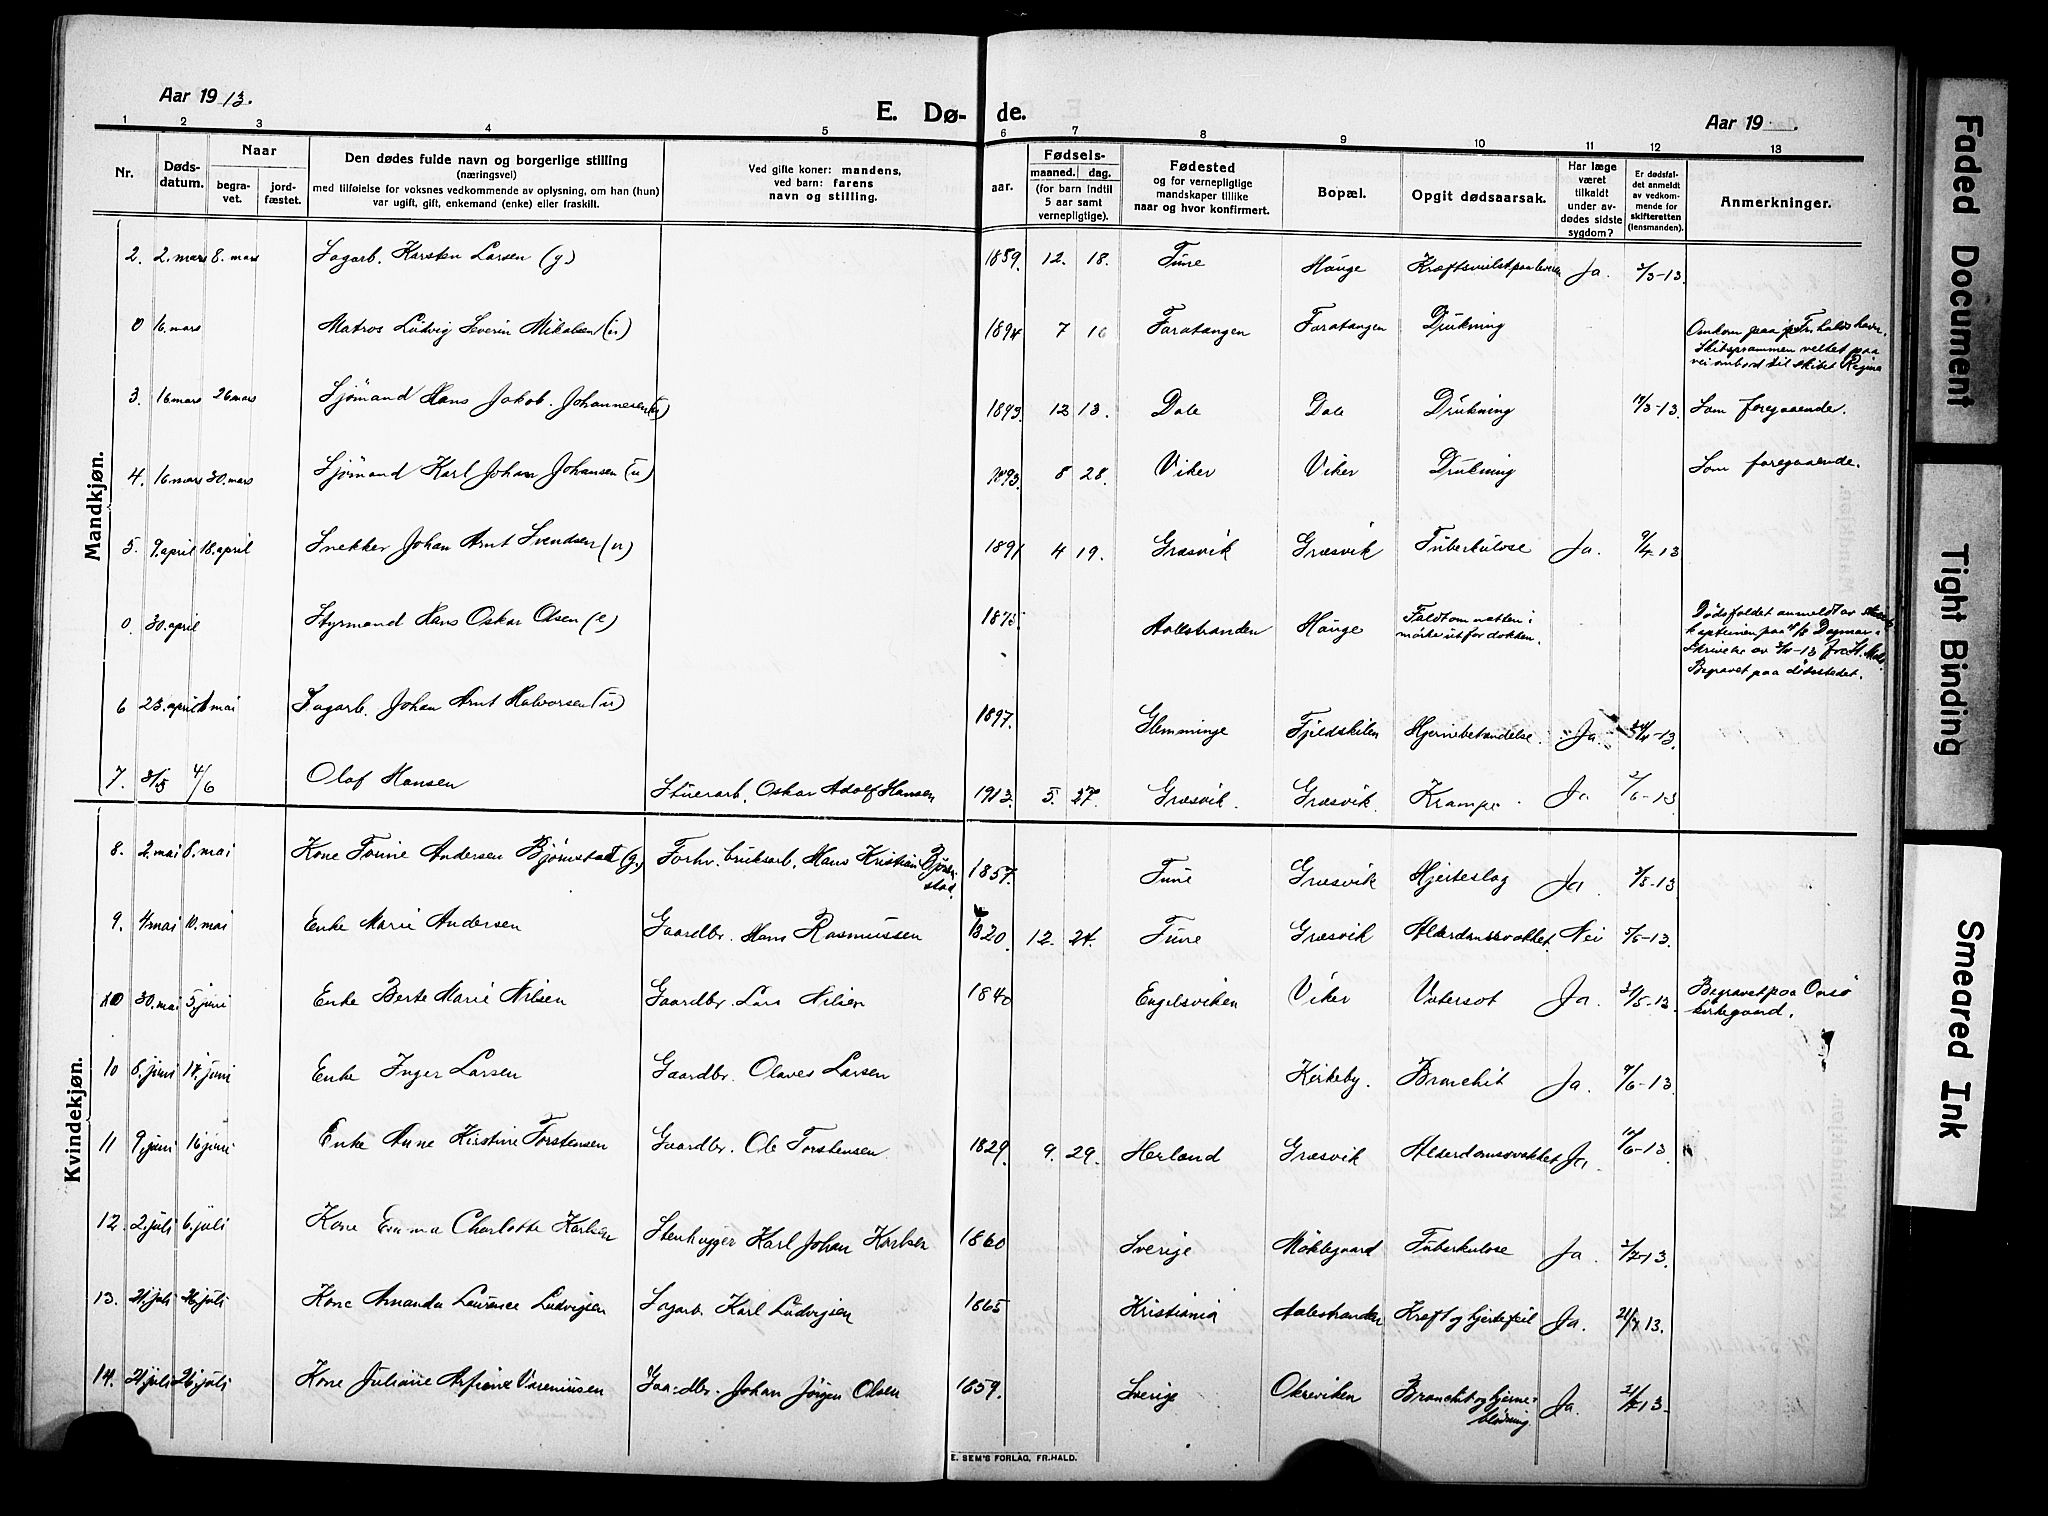 Aar 1913.
E. Dø-de.
Aar 19
1 2 3 4 5 6 7 8 9 10 11 12 13
Nr.
Døds-
datum.
Naar
begra-
vet.
jord-
fæstet.
Den dødes fulde navn og borgerlige stilling
(næringsvei)
med tilføielse for voksnes vedkommende av oplysning, om han (hun)
var ugift, gift, enkemand (enke) eller fraskilt.
Ved gifte koner: mandens,
ved barn: farens
navn og stilling.
aar.
Fødsels-
maaned. dag.
(for barn indtil
5 aar samt
vernepligtige).
Fødested
og for vernepligtige
mandskaper tillike
naar og hvor konfirmert.
Bopæl.
Opgit dødsaarsak.
Har læge
været
tilkaldt
under av-
dødes sidste
sygdom?
Er dødsfal-
det anmeldt
av vedkom-
mende for
skifteretten
(lensmanden).
Anmerkninger.
Mandkjøn.
2. 2. mars 8. mars Sagarb. Karsten Larsen (g) 1859. 12. 18. Tune Hauge Ja. 3/3-13.
0 16. mars Matros Ludvig Severin Mikalsen (u) 1894 7 16 Faratangen Faratangen Drukning Omkom paa Fr.halds havn.
Skibsprammen veltet paa
vei ombord til skibet Regina
3. 16 mars 26 mars Sjømand Hans Jakob Johannesen (u) 1893. 12 13. Dale Dale Drukning 17/3-13. Som foregaaende.
4. 16 mars 30. mars Sjømand Karl Johan Johansen (u) 1893. 8 28. Viker Viker Drukning Som foregaaende.
5. 9. april 18. april Snekker Johan Arnt Svendsen (u) 1891 4 19. Græsvik Græsvik Tuberkulose Ja. 9/4-13
0. 30. april Styrmand Hans Oskar Olsen (e) 1875 Aalestranden Hauge Faldt om natten i
mørke utfor dokken.
Dødsfaldet anmeldt av
kapteinen paa Dagmar i
skrivelse av
Begravet paa dødsstedet.
6 23. april 1 mai Sagarb. Johan Arnt Halvorsen (u) 1897. Glemminge Fjeldskilen Hjernebetændelse. Ja. 24/4-13.
7. 31/5 4/6 Olaf Hansen Stuerarb. Oskar Adolf Hansen 1913. 5. 27. Græsvik. Græsvik. Krampe. Ja 2/6-13
Kvindekjøn.
8. 2. mai 8. mai Kone Andersen Bjørnstad (g) Forhv. bruksarb. Hans Kristian Bjørn-
stad. 1857. Tune Græsvik Hjerteslag Ja. 3/5-13
9. 4. mai 10. mai Enke Marie Andersen Gaardbr. Hans Rasmussen 1820. 12. 24. Tune Græsvik Alderdomssvakhet Nei 5/5-13.
10 30. mai 5. juni Enke Berte Marie Nilsen Gaardbr. Lars Nilsen 1840 Engelsviken Viker Vatersot Ja. 31/5-13 Begravet paa Onsø
kirkegaard.
10 6. juni 14. juni Enke Inger Larsen Gaardbr. Olaves Larsen Kirkeby. Bronchit Ja. 7/6-13.
11 9. juni 16 juni Enke Anne Kirstine Torstensen Gaardbr. Ole Torstensen 1829. 9. 29. Herland Græsvik Alderdomssvakhet Ja. 10/6-13.
12. 2. juli 6. juli Kone Emma Charlotte Karlsen Stenhugger Karl Johan Karlsen 1860 Sverige Møklegaard Tuberkulose Ja. 3/7-13.
13. 21. juli 26. juli Kone Amanda Laurence Ludvigsen Sagarb. Karl Ludvigsen 1865 Kristiania Aalestranden Kræft og hjertefeil Ja. 21/7 13.
14. 21. juli 26. juli Kone Juliane Varenusen Gaardbr. Johan Jørgen Olsen 1859. Sverige Bronchit og hjerne-
blødning Ja. 21/7-13.
E. SEM'S FORLAG, FR.HALD.
Faded Document
Tight Binding
Smeared Ink